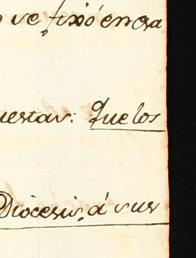 se fixó en esa
uestas: Que los
Diocesis, á sus